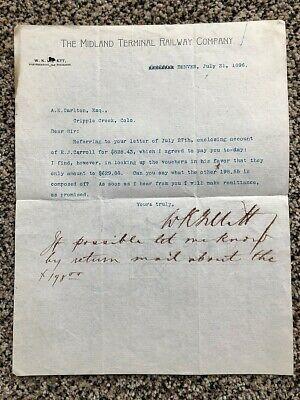 THE MIDLAND TERMINAL RAILWAY COMPANY
W. K.
DENVER, July 31, 1896.
A.E.Carlton, Esq.,
Cripple Creek, Colo.
Dear Sir:
Referring to your letter of July 27th, enclosing account
of E.J.Carroll for $828.43, which I agreed to pay you to-day:
I find, however, in looking up the vouchers in his favor that they
only amount to $629.88. Can you say what the other 198.55 is
composed of? As soon as I hear from you I will make remittance,
as promised.
Yours truly,
If possible let me know
by return mail about the